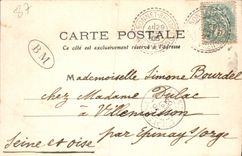 Dulac
CARTE POSTALE
Ce côté est exclusivement réservé à l'adresse
BM
Mademoiselle Simone Bourdel
chez Madame Dulac
à Villemoisson
par Epinay s/orge
Seine et oise